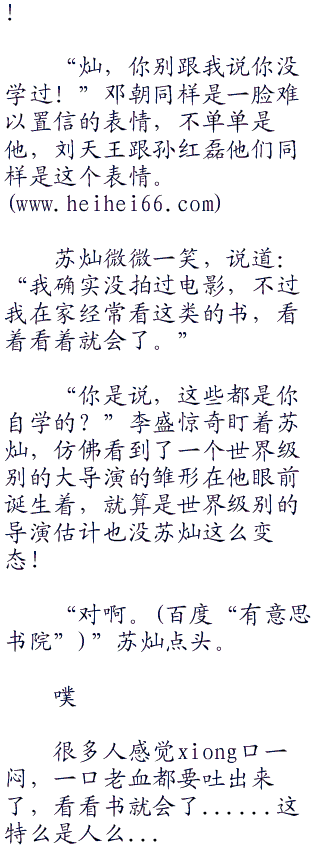 ！
“灿，你别跟我说你没
学过！”邓朝同样是一脸难
以置信的表情，不单单是
他，刘天王跟孙红磊他们同
样是这个表情。
(www.heihei66.com)
苏灿微微一笑，说道：
“我确实没拍过电影，不过
我在家经常看这类的书，看
着看着就会了。”
“你是说，这些都是你
自学的？”李盛惊奇盯着苏
灿，仿佛看到了一个世界级
别的大导演的雏形在他眼前
诞生着，就算是世界级别的
导演估计也没苏灿这么变
态！
“对啊。(百度“有意思
书院”)”苏灿点头。
噗
很多人感觉xiong口一
闷，一口老血都要吐出来
了，看看书就会了......这
特么是人么...